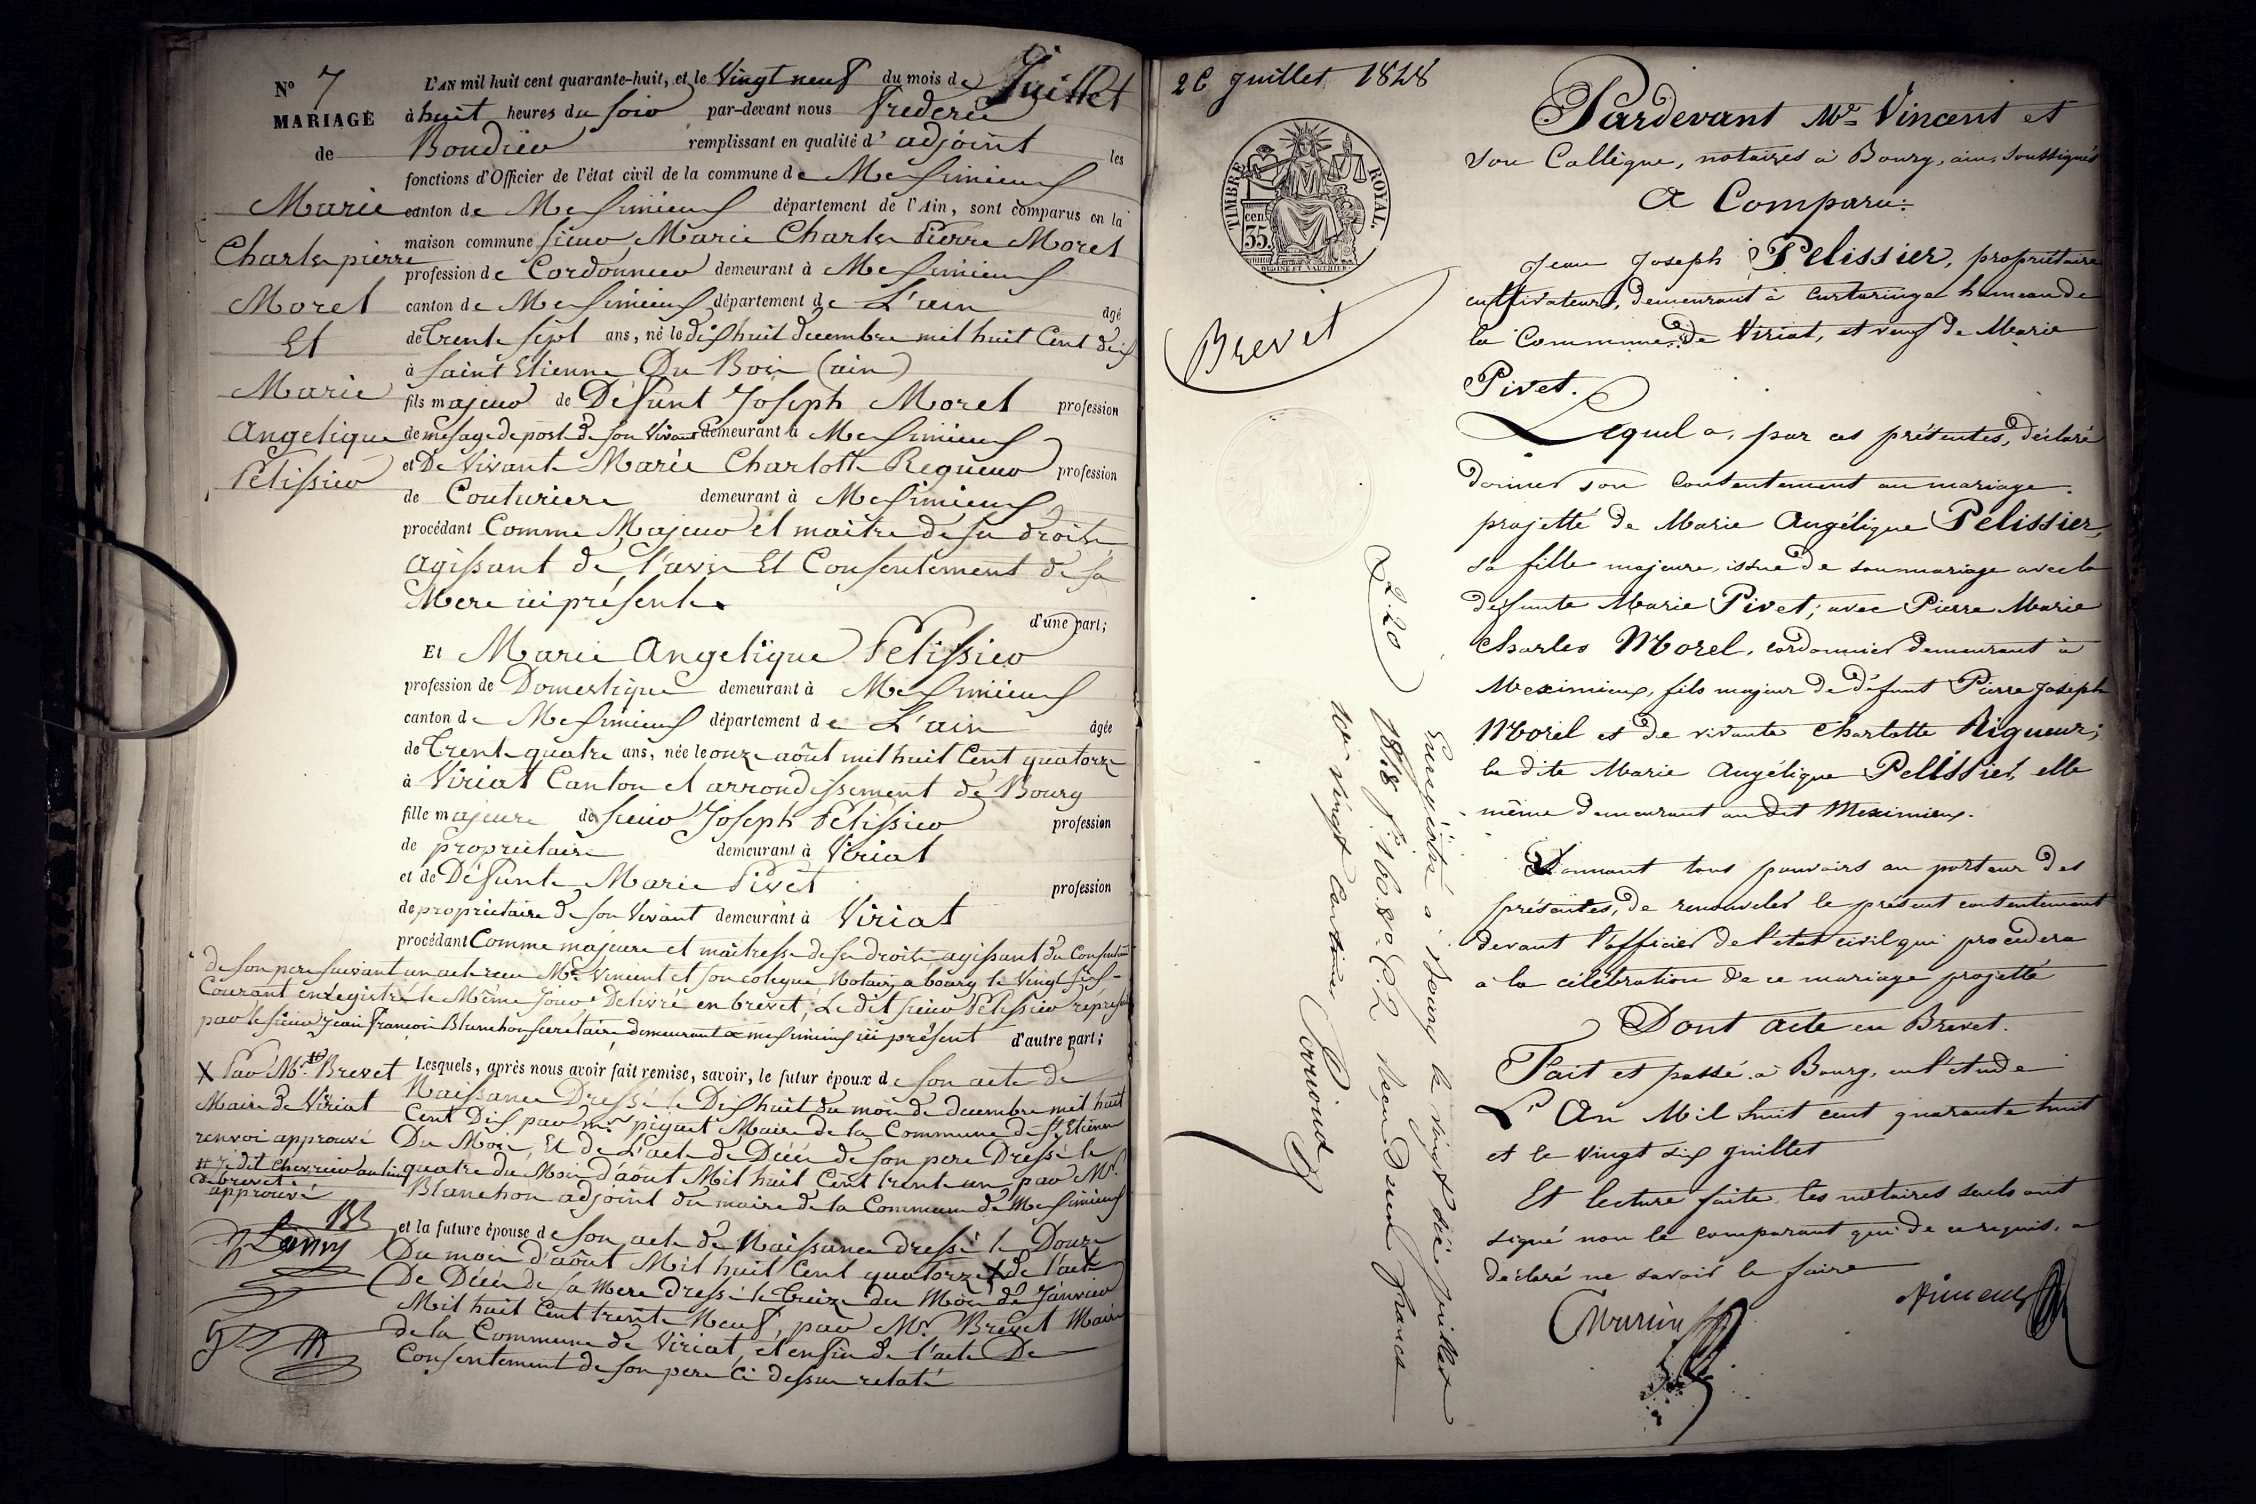 N° 7
MARIAGE
de
Marie
Charles pierre
Morel
Et
Marie
Angelique
Pelissier
L'AN mil huit cent quarante-huit, et le Vingt neuf du mois de Juillet
à huit heures du soir par-devant nous Frederic
Boudier remplissant en qualité d'adjoint les
fonctions d'Officier de l'état civil de la commune de Meximieux
canton de Meximieux département de l'Ain, sont comparus en la
maison commune sieur Marie Charles Pierre Morel
profession de Cordonnier demeurant à Meximieux
canton de Meximieux département de L'ain âgé
de trente sept ans, né le dix huit decembre mil huit Cent dix
à Saint Etienne Du Bois (ain)
fils majeur de Défunt Joseph Morel profession
de mesage de poste de son Vivant demeurant à Meximieux
et De Vivante Marie Charlotte Regueur profession
de Couturiere demeurant à Meximieux
procédant Comme Majeur et maitre de ses droits
agissant de l'avis Et Consentement de sa
Mere ici présente
d'une part;
Et Marie Angelique Pelissier
profession de Domestique demeurant à Meximieux
canton de Meximieux département de L'ain âgée
de Trente quatre ans, née le onze août mil huit Cent quatorze
à Viriat Canton et arrondissement de Bourg
fille majeure de sieur Joseph Pelissier profession
de propriétaire demeurant à Viriat
et de Défunte Marie Pivet profession
de propriétaire de son Vivant demeurant à Viriat
procédant Comme majeure et maîtresse de ses droits agissant du Consentemt
de son pere suivant un acte reçu Mr Vincent et son colegue Notair, a bourg le Vingt six
Courant enregistré le Même Jour Delivré en brevet; Le dit sieur Pelissier représenté
par le sieur Jean François Blanchon secretaire demeurant a meximieux ici présent d'autre part;
Lesquels, après nous avoir fait remise, savoir, le futur époux de son acte de
Naissance Dressé le Dix huit du mois de decembre mil huit
Cent Dix par mr piquet Maire de la Commune de St Etienne
Du Bois, Et de L'acte de Décès de son pere Dressé le
quatre du Mois d'août Mil huit Cent trente un par Mr
Blanchon adjoint du maire de la Commune de Meximieux
et la future épouse de son acte de Naissance dressé le Douze
Du mois d'août Mil huit Cent quatorze X de l'acte
De Décès de sa Mere dressé le treize du Mois de Janvier
Mil huit Cent trente Neuf, par Mr Brevet Maire
de la Commune de Viriat, et enfin de l'acte De
Consentement de son pere ci dessus relaté
X Par Mr # Brevet
Maire de Viriat
renvoi approuvé
approuvé
26 Juillet 1848
TIMBRE ROYAL.
35 cen.
Brevet
Pardevant Me Vincent et
Son Collègue, notaires à Bourg, ain, soussignés
A Comparu:
Jean Joseph Pelissier, propriétaire
cultivateur, demeurant à Curtaringe hameau de
la Commune de Viriat, et veuf de Marie
Pivet.
Lequel a, par ces présentes, déclaré
donner son consentement au mariage
projetté de Marie Angélique Pelissier,
sa fille majeure, issue de son mariage avec la
défunte Marie Pivet; avec Pierre Marie
Charles Morel, cordonnier demeurant à
Meximieux, fils majeur de défunt Pierre Joseph
Morel et de vivante Charlotte Rigueur;
la dite Marie Angélique Pelissier, elle
même demeurant au dit Meximieux.
Donnant tous pouvoirs au porteur des
présentes, de renouveler le présent consentement
devant l'officier de l'état civil qui procedera
à la célébration de ce mariage projetté
Dont acte en Brevet.
Fait et passé à Bourg, en l'étude
L'An Mil huit cent quarante huit
et le vingt six Juillet
Et lecture faite, les notaires seuls ont
signé non le comparant qui de ce requis, a
déclaré ne savoir le faire
Vincent
2.20
Enregistré à Bourg le vingt six Juillet
1848 f° 160 Ro C. 2 Reçu deux francs
vingt centimes